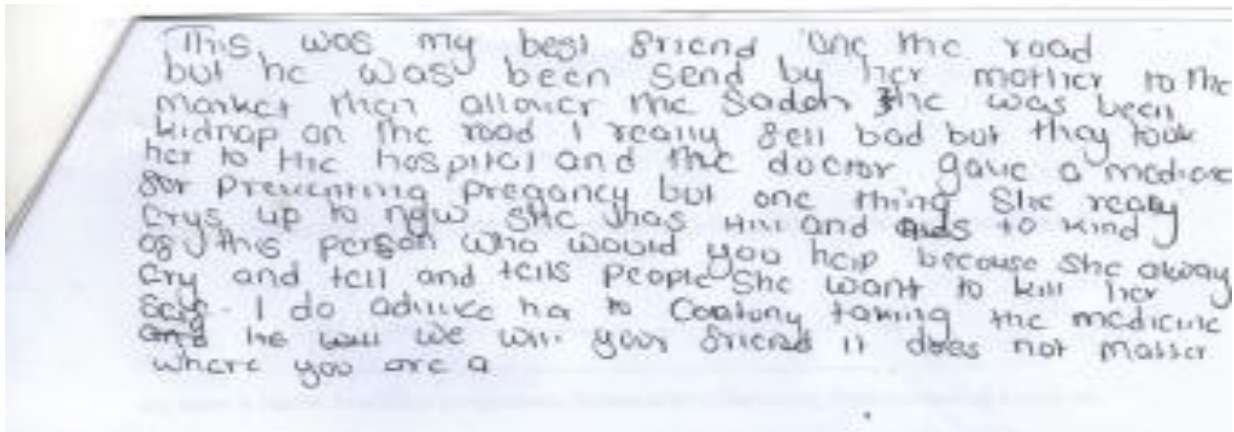 This was my best friend one the road
but he was been send by her mother to the
market then allover the Sadon She was been
kidnap on the road I really fell bad but they took
her to the hospital and the doctor gave a medicine
for preventing pregancy but one thing She realy
Crys up to now she has HIV and Aids to kind
of this person who would you help because she alway
Cry and tell and tells people She want to kill her
Self. I do advice her to Contuny taking the medicine
and he will we will your friend it does not matter
where you are a